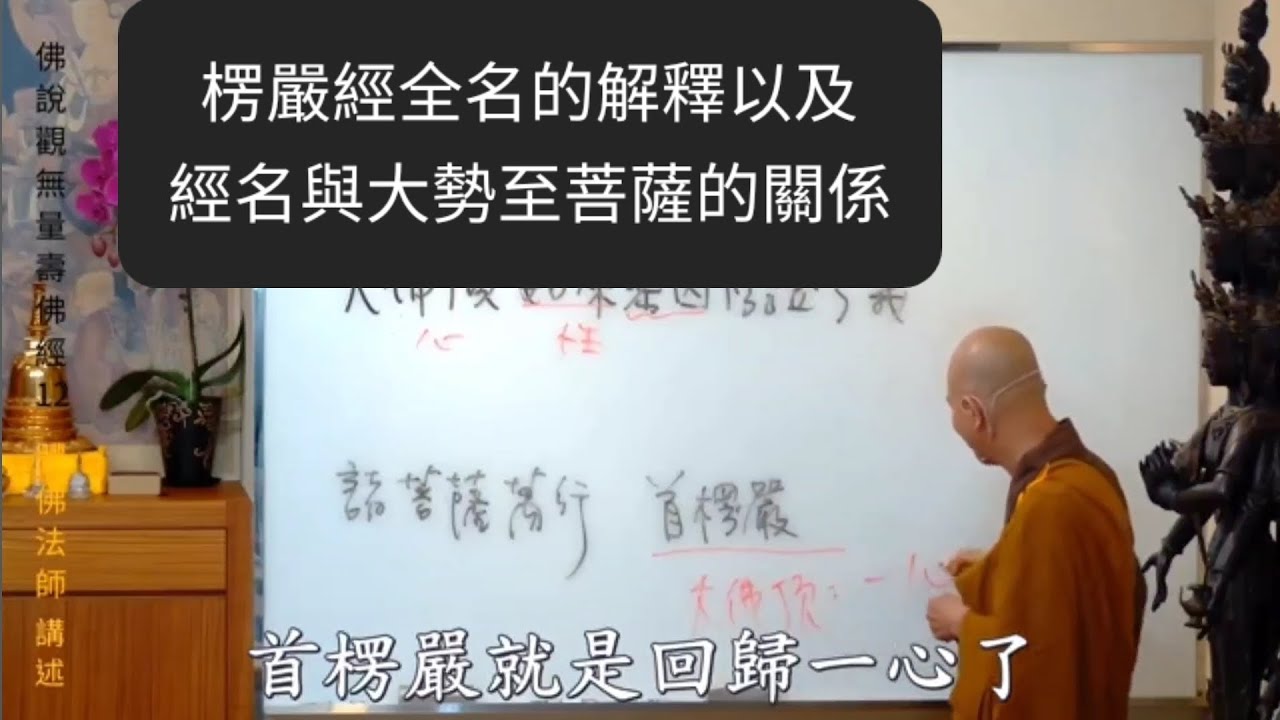 楞嚴經全名的解釋以及
經名與大勢至菩薩的關係
佛說觀無量壽佛經12
佛法師講述
大佛頂如來密因修證了義
心 性
諸菩薩萬行 首楞嚴
大佛頂:一心
首楞嚴就是回歸一心了